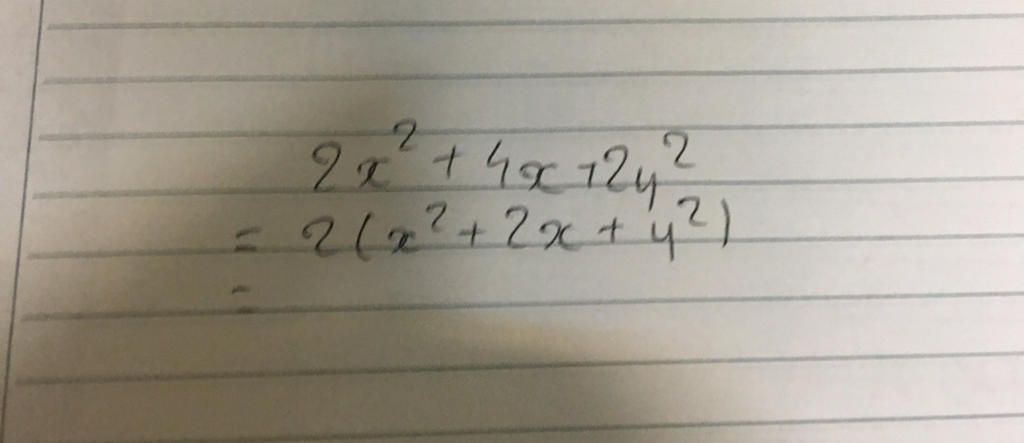 2x² + 4x + 2y²
= 2(x² + 2x + y²)
=